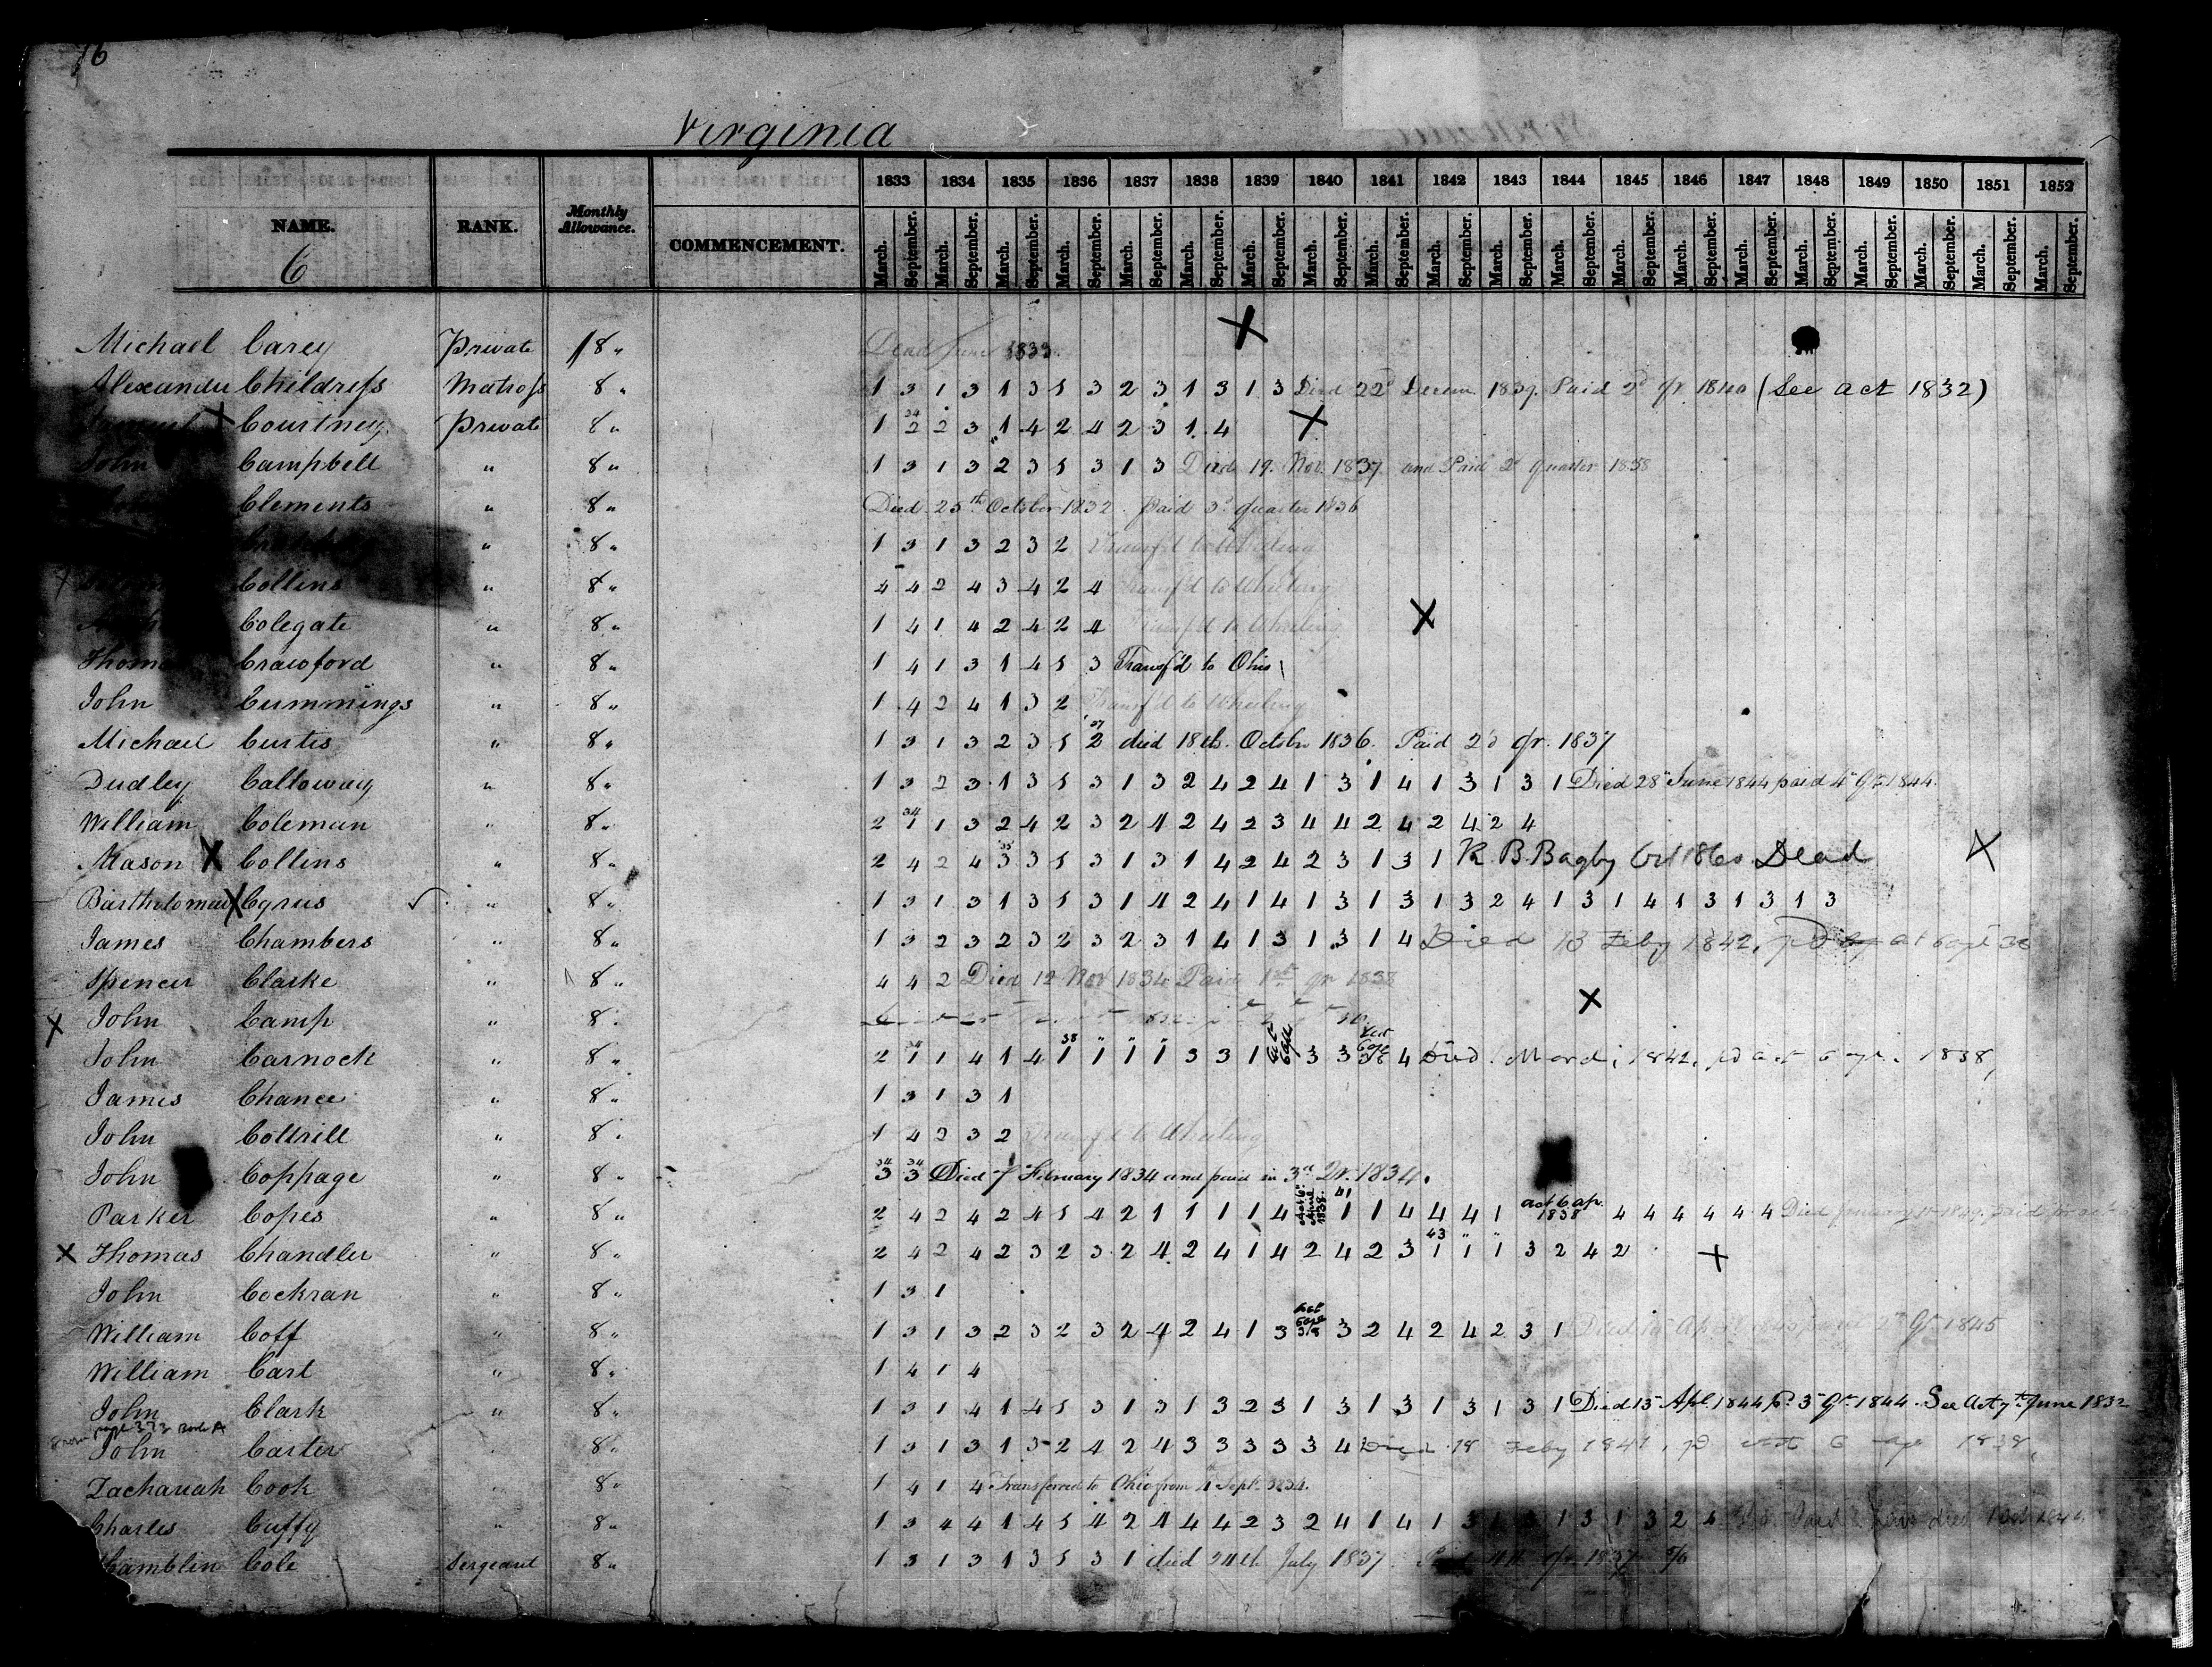 16
Virginia
NAME. RANK. Monthly Allowance. COMMENCEMENT. 1833 1834 1835 1836 1837 1838 1839 1840 1841 1842 1843 1844 1845 1846 1847 1848 1849 1850 1851 1852
March. September. March. September. March. September. March. September. March. September. March. September. March. September. March. September. March. September. March. September. March. September. March. September. March. September. March. September. March. September. March. September. March. September. March. September. March. September. March. September.
C
Michael Carey Private 8 " Dead June 1833
Alexander Childress Matross 8 " 1 3 1 3 1 3 1 3 2 3 1 3 1 3 Died 22d Decem. 1839. Paid 2d qr 1840 (See act 1832)
Courtney Private 8 " 1 2 2 3 1 4 2 4 2 3 1 4
John Campbell " 8 " 1 3 1 3 2 3 1 3 1 3 Died 19 Nov. 1837 and Paid 2d quarter 1838
Clements " 8 " Died 25th October 1832. paid 3d quarter 1836
" 8 " 1 3 1 3 2 3 2 Transf'd to Wheeling
Collins " 8 " 4 4 2 4 3 4 2 4 Transf'd to Wheeling
Colegate " 8 " 1 4 1 4 2 4 2 4 Transf'd to Wheeling
Thomas Crawford " 8 " 1 4 1 3 1 4 1 3 Transf'd to Ohio
John Cummings " 8 " 1 4 2 4 1 3 2 Transf'd to Wheeling
Michael Curtis " 8 " 1 3 1 3 2 3 1 2 died 18th. Octobr 1836. Paid 2'd qr. 1837
Dudley Calloway " 8 " 1 3 2 3 1 3 1 3 1 3 2 4 2 4 1 3 1 4 1 3 1 3 1 Died 28 June 1844 paid 4" Qr 1844.
William Coleman " 8 " 2 1 1 3 2 4 2 3 2 4 2 4 2 3 4 4 2 4 2 4 2 4
Mason X Collins " 8 " 2 4 2 4 3 3 1 3 1 3 1 4 2 4 2 3 1 3 1 R. B. Bagby Oct 1860 Dead
Bartholomew X Cyrus " 8 " 1 3 1 3 1 3 1 3 1 4 2 4 1 4 1 3 1 3 1 3 2 4 1 3 1 4 1 3 1 3 1 3
James Chambers " 8 " 1 3 2 3 2 3 2 3 2 3 1 4 1 3 1 3 1 4 Died 13 Feby 1842, pd act 6 apl 38
Spencer Clarke " 8 " 4 4 2 Died 12 Nov 1834 Paid 1st qr 1838
X John Camp " 8 "
John Carnock " 8 " 2 1 1 4 1 4 1 1 1 1 3 3 1 act 6 apl 3 3 act 6 apl 38 4 Died March 1842, pd act 6 ap. 1838,
James Chance " 8 " 1 3 1 3 1
John Cottrill " 8 " 1 4 2 3 2 Transf'd to Wheeling
John Coppage " 8 " 3 3 Died 7 February 1834 and paid in 3rd Qr. 1834.
Parker Copes " 8 " 2 4 2 4 2 4 1 4 2 1 1 1 1 4 act 6 April 1838. 1 1 4 4 4 1 act 6 ap. 1838 4 4 4 4 4 4 Died January
X Thomas Chandler " 8 " 2 4 2 4 2 3 2 3 2 4 2 4 1 4 2 4 2 3 1 1 1 3 2 4 2
John Cockran " 8 " 1 3 1
William Coff " 8 " 1 3 1 3 2 3 2 3 2 4 2 4 1 3 act 6 apl 38 3 2 4 2 4 2 3 1 Died Qr 1845
William Cart " 8 " 1 4 1 4
John Clark " 8 " 1 3 1 4 1 4 1 3 1 3 1 3 2 3 1 3 1 3 1 3 1 3 1 Died 15 Apl. 1844 pd 3" Qr. 1844. See Act 7th June 1832
John Carter 8 " 1 3 1 3 1 3 2 4 2 4 3 3 3 3 3 4 Died 18 Feby 1841, pd act 6 ap 1838,
Zachariah Cook 8 " 1 4 1 4 Transferred to Ohio from 4th Sept. 1834.
Charles Cuffy " 8 " 1 3 4 4 1 4 1 4 2 4 4 4 2 3 2 4 1 4 1 3 1 3 1 3 1 3 2
Cole Sergeant 8 " 1 3 1 3 1 3 1 3 1 died 24th July 1837. Paid 4th qr 1837